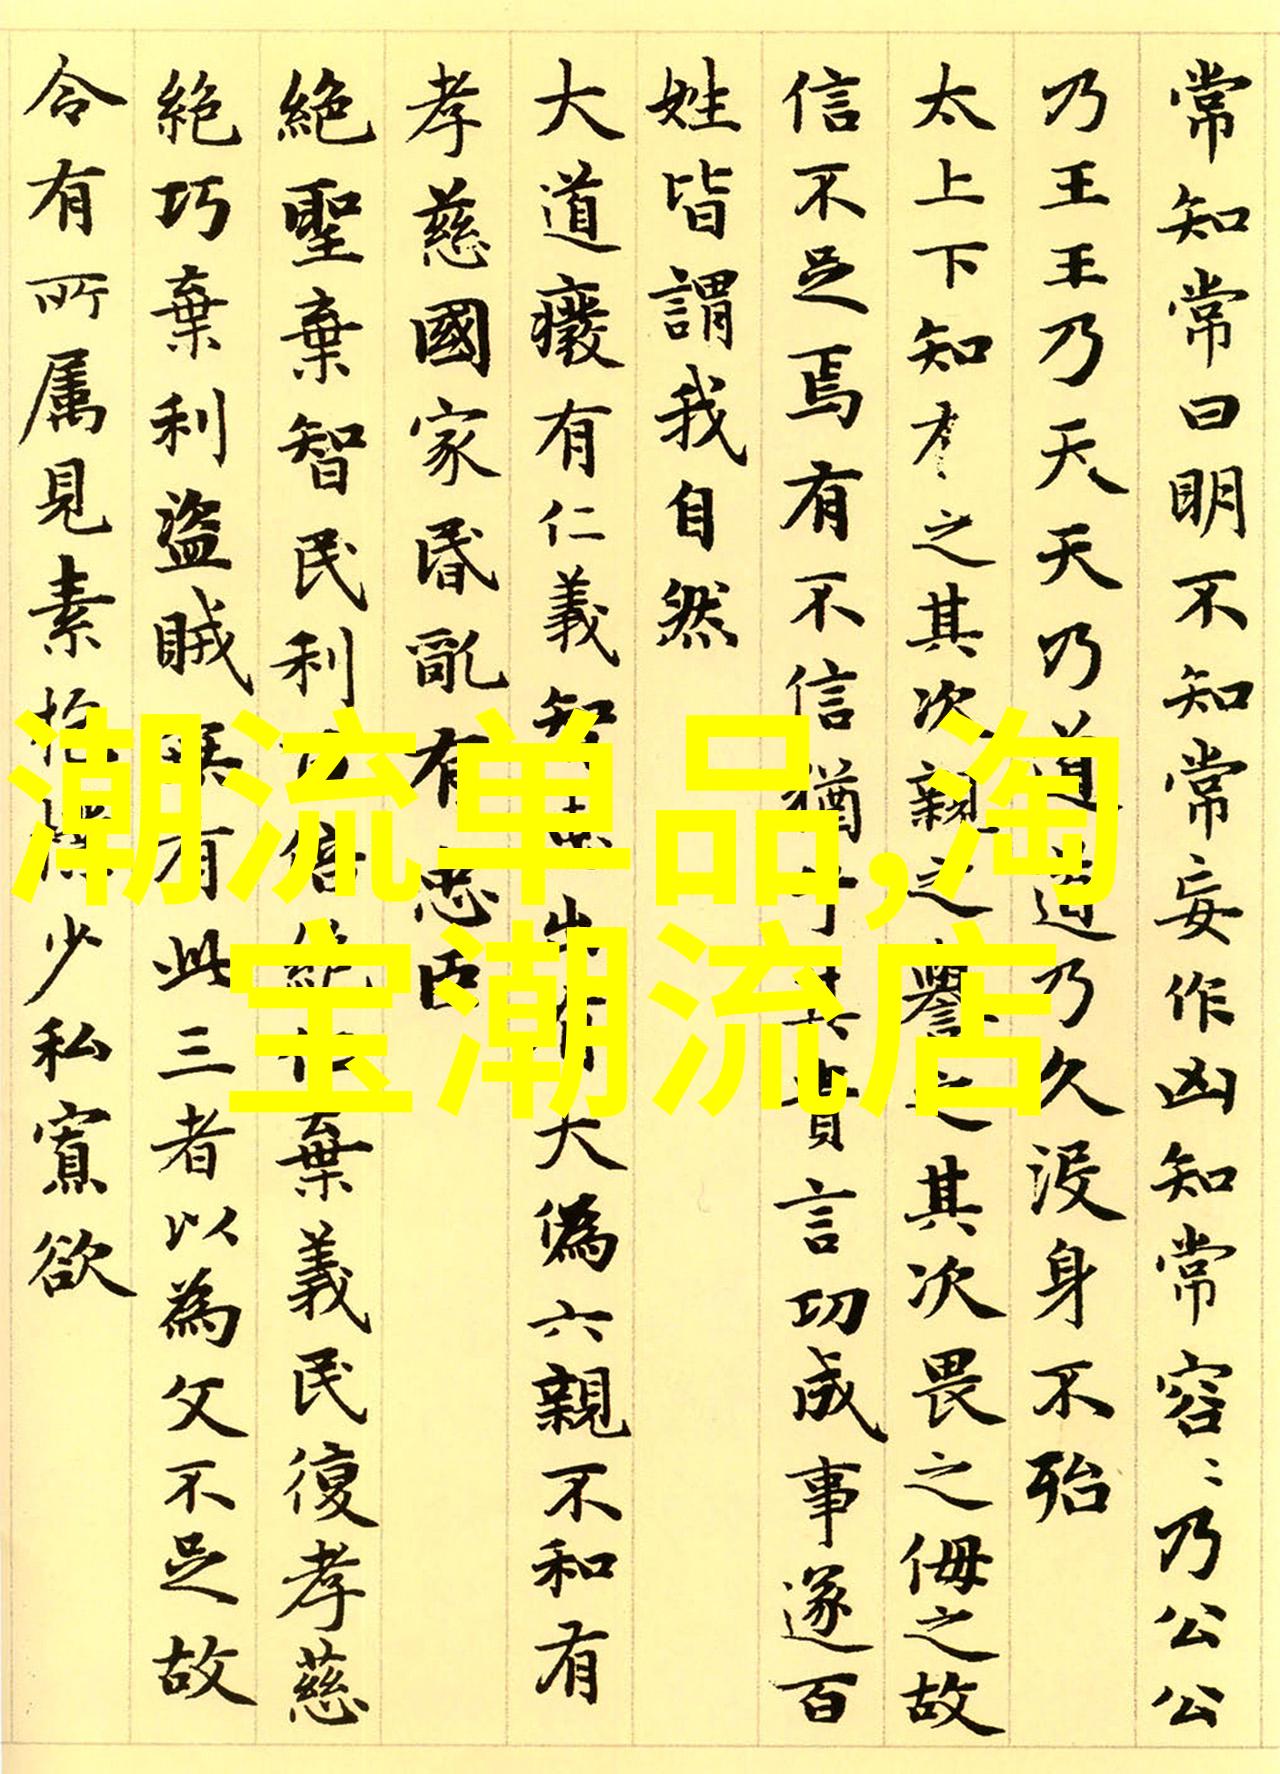 常知常曰明不知知常妄作凶知常容〻乃公公
乃王王乃天天乃道道乃久没身不殆
太上下知有之其次親之譽之其次畏之侮之故
信不足焉有不信猶其貴言功成事遂百
姓皆謂我自然
大道癈有仁義知出有大偽六親不和有
孝慈國家昏亂有忠臣
絕聖棄智民利百倍絕仁棄義民復孝慈
絕巧棄利盜賊無有此三者以為文不足故
令有所属見素抱樸少私寡欲
潮流单品,淘
宝潮流店